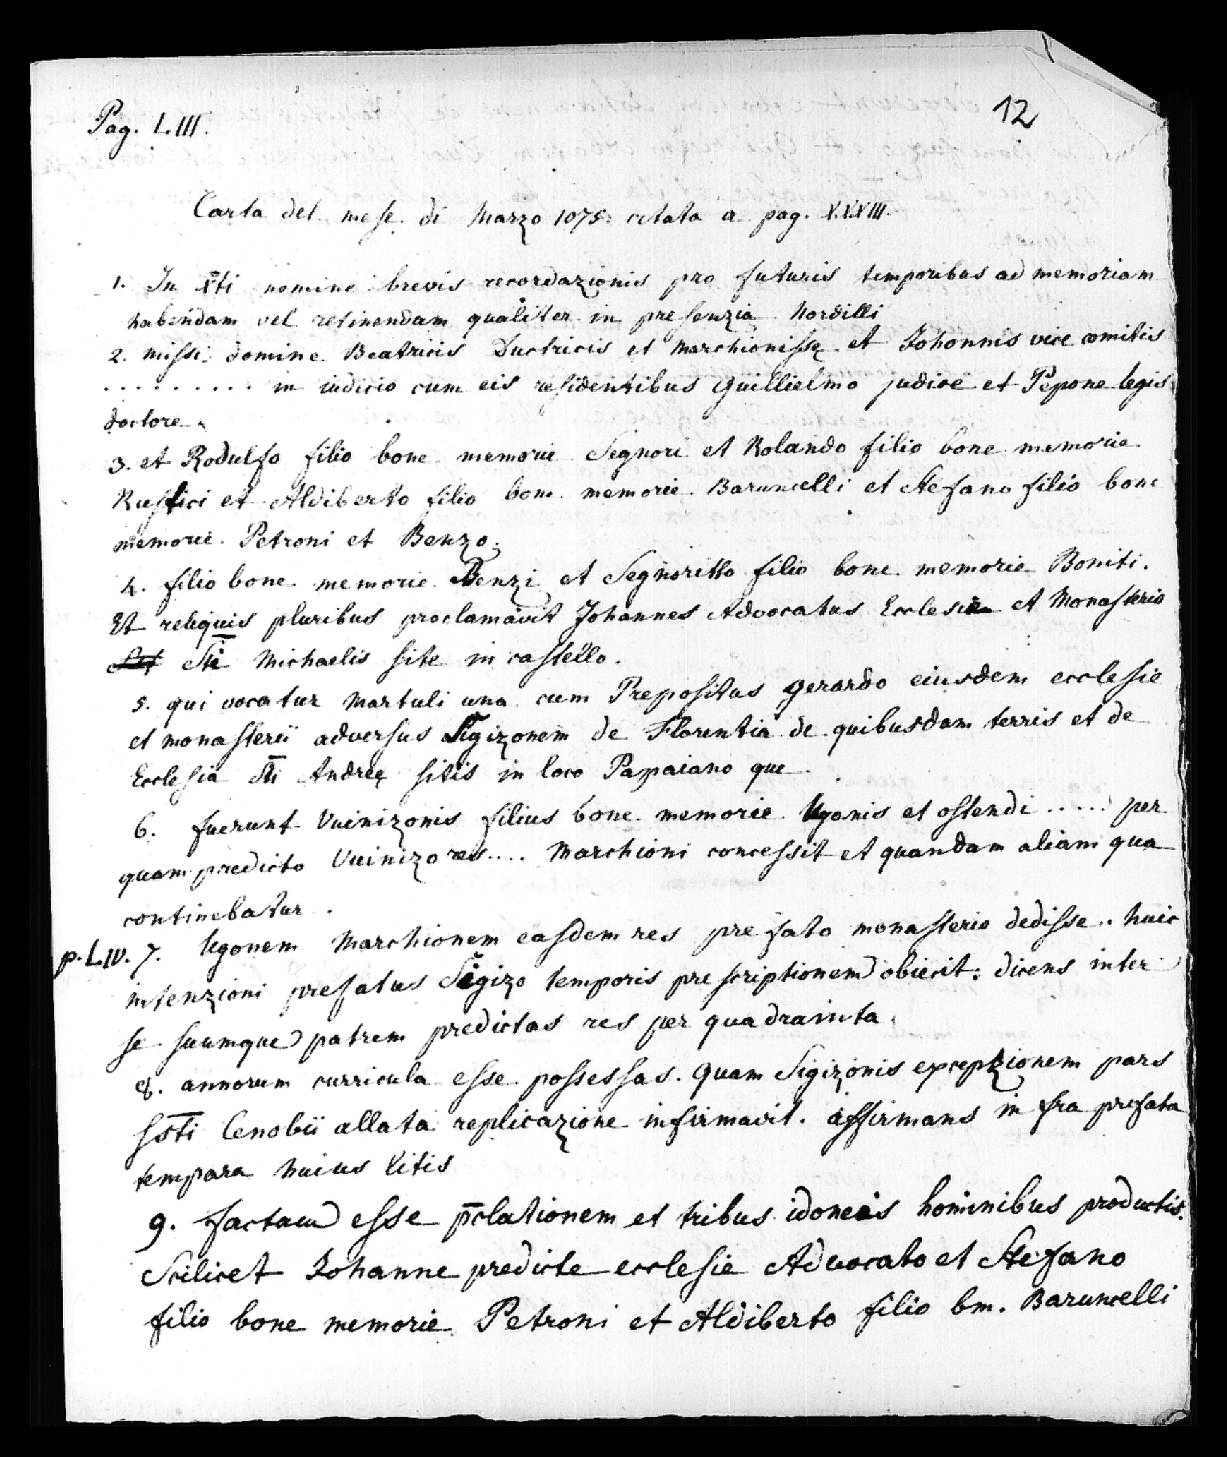 Pag. LIII.
12
Carta del mese di Marzo 1075. citata a pag. XXXIII.
1. In x̄ti nomine brevis recordazionis pro futuris temporibus ad memoriam
habendam vel retinendam qualiter in presenzia Nordilli
2. missi domine Beatricis Ductricis et Marchionissę et Johonnis vice comitis
.......... in iudicio cum eis residentibus Guillielmo judice et Pepone legis
doctore.
3. et Rodulfo filio bone memorie Segnori et Rolando filio bone memorie
Rustici et Aldiberto filio bone memorie Baruncelli et Stefano filio bone
memorie Petroni et Benzo.
4. filio bone memorie Benzi et Segnoritto filio bone memorie Boniti.
Et reliquis pluribus proclamavit Johannes Advocatus Ecclesie et Monasterio
S̄ti Michaelis site in castello.
5. qui vocatur Martuli una cum Prepositus Gerardo eiusdem ecclesie
et monasterii adversus Sigizonem de Florentia de quibusdam terris et de
Ecclesia S̄ti Andreę sitis in loco Papaiano que
6. fuerunt Vuinizonis filius bone memorie Ugonis et ostendi ..... per
quam predicto Vuinizo res.... Marchioni concessit et quandam aliam qua
continebatur.
p. LIV. 7. Ugonem Marchionem easdem res prefato monasterio dedisse. huic
intenzioni prefatus Sigizo temporis prescriptionem obiecit. dicens inter
se suumque patrem predictas res per quadrainta.
8. annorum curricula esse possessas. Quam Sigizonis excepzionem pars
ss̄ti Cenobii allata replicazione infirmavit. affirmans in fra prefata
tempara huius litis
9. factam esse p̄clationem et tribus idoneis hominibus productis.
Scilicet Johanne predicte ecclesie Advocato et Stefano
filio bone memorie Petroni et Aldiberto filio bm. Baruncelli